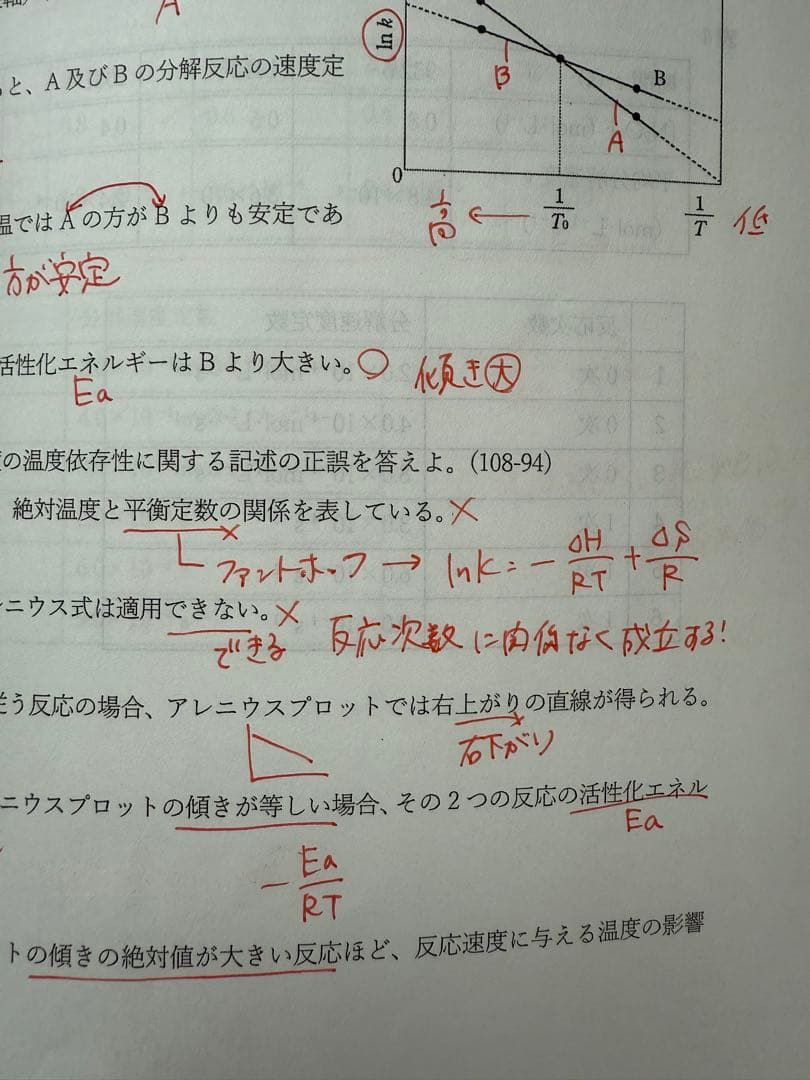 A
ln k
と、A及びBの分解反応の速度定
B
B
A
0
1/T₀
1/T
1/高 ←
低
温ではAの方がBよりも安定であ
方が安定
活性化エネルギーはBより大きい。○ 傾き大
Ea
の温度依存性に関する記述の正誤を答えよ。(108-94)
絶対温度と平衡定数の関係を表している。×
ファントホッフ → lnK = - ΔH/RT + ΔS/R
ニウス式は適用できない。×
できる 反応次数に関係なく成立する!
う反応の場合、アレニウスプロットでは右上がりの直線が得られる。
右下がり
ニウスプロットの傾きが等しい場合、その2つの反応の活性化エネル
Ea
- Ea/RT
トの傾きの絶対値が大きい反応ほど、反応速度に与える温度の影響